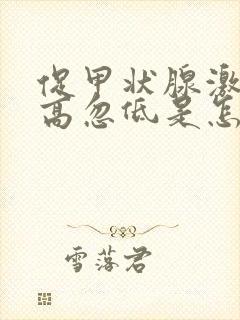 促甲状腺激
高忽低是怎
雪落君